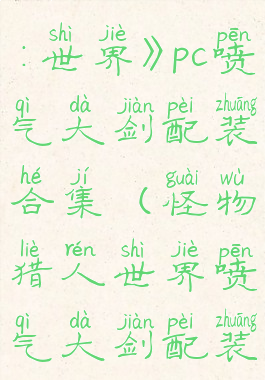 shì jiè pēn
:世界》pc喷
qì dà jiàn pèi zhuāng
气大剑配装
hé jí guài wù
合集(怪物
liè rén shì jiè pēn
猎人世界喷
qì dà jiàn pèi zhuāng
气大剑配装